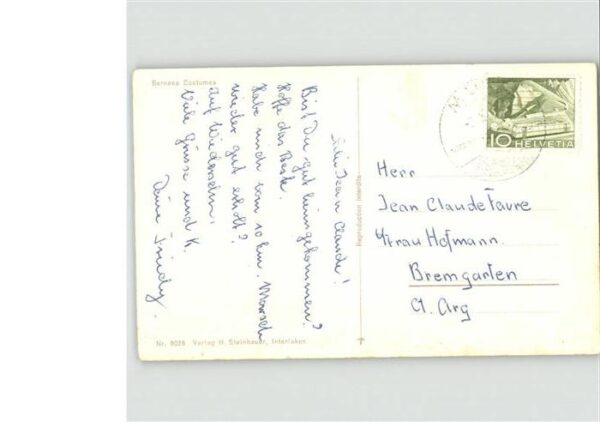 Bernese Costumes
Lieber Jean Claude!
Bist Du gut heimgekommen?
Hoffe das Beste.
Habe mich vom 10 km. Marsch
wieder gut erholt?
Auf Wiedersehn.
Viele Grüsse und K.
Deine Friedy.
Nr. 9026 Verlag H. Steinhauer, Interlaken
Reproduction interdite
10 HELVETIA
Herr
Jean Claude Favre
Frau Hofmann.
Bremgarten
Ct. Arg